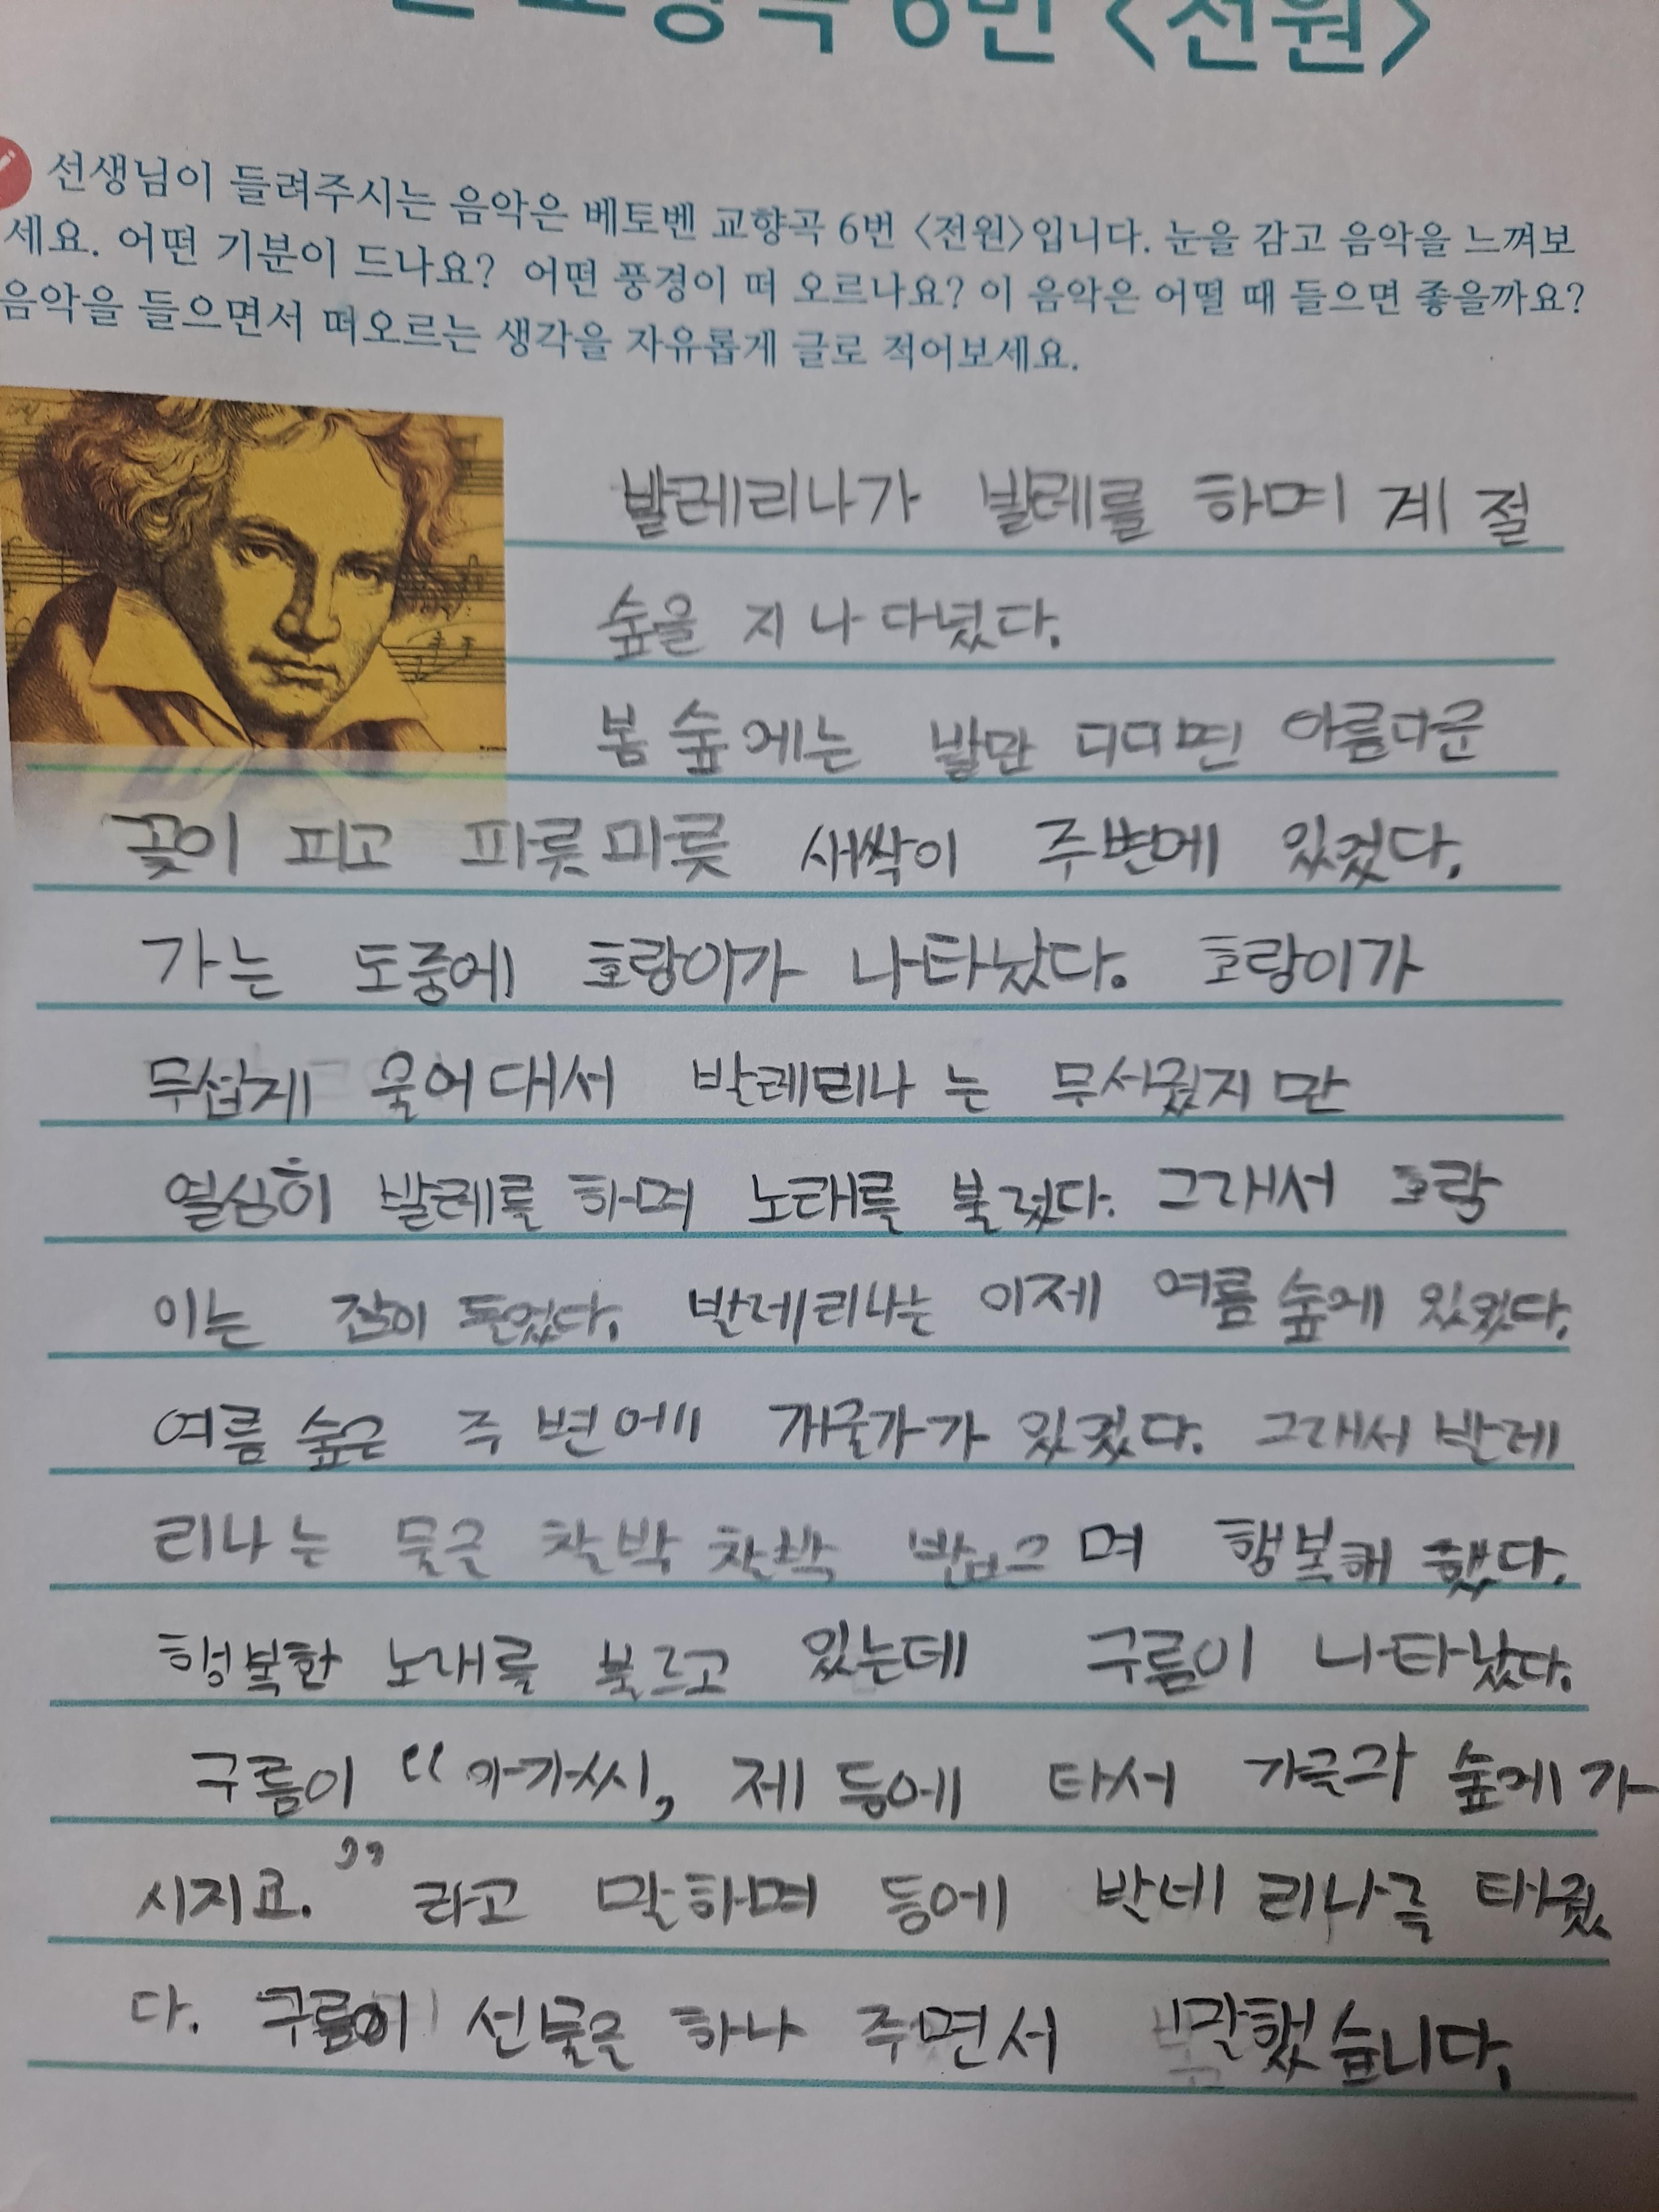 교향곡 6번 <전원>
선생님이 들려주시는 음악은 베토벤 교향곡 6번 <전원>입니다. 눈을 감고 음악을 느껴보
세요. 어떤 기분이 드나요? 어떤 풍경이 떠 오르나요? 이 음악은 어떨 때 들으면 좋을까요?
음악을 들으면서 떠오르는 생각을 자유롭게 글로 적어보세요.
발레리나가 발레를 하며 계절
숲을 지나다녔다.
봄 숲에는 발만 디디면 아름다운
꽃이 피고 파릇파릇 새싹이 주변에 있었다.
가는 도중에 호랑이가 나타났다. 호랑이가
무섭게 울어대서 발레리나는 무서웠지만
열심히 발레를 하며 노래를 불렀다. 그래서 호랑
이는 잠이 들었다. 발레리나는 이제 여름 숲에 있었다.
여름 숲은 주변에 개울가가 있었다. 그래서 발레
리나는 물을 찰박 찰박 밟으며 행복해 했다.
행복한 노래를 부르고 있는데 구름이 나타났다.
구름이 "아가씨, 제 등에 타서 가을 숲에 가
시지요." 라고 말하며 등에 발레리나를 태웠
다. 구름이 선물을 하나 주면서 말했습니다.